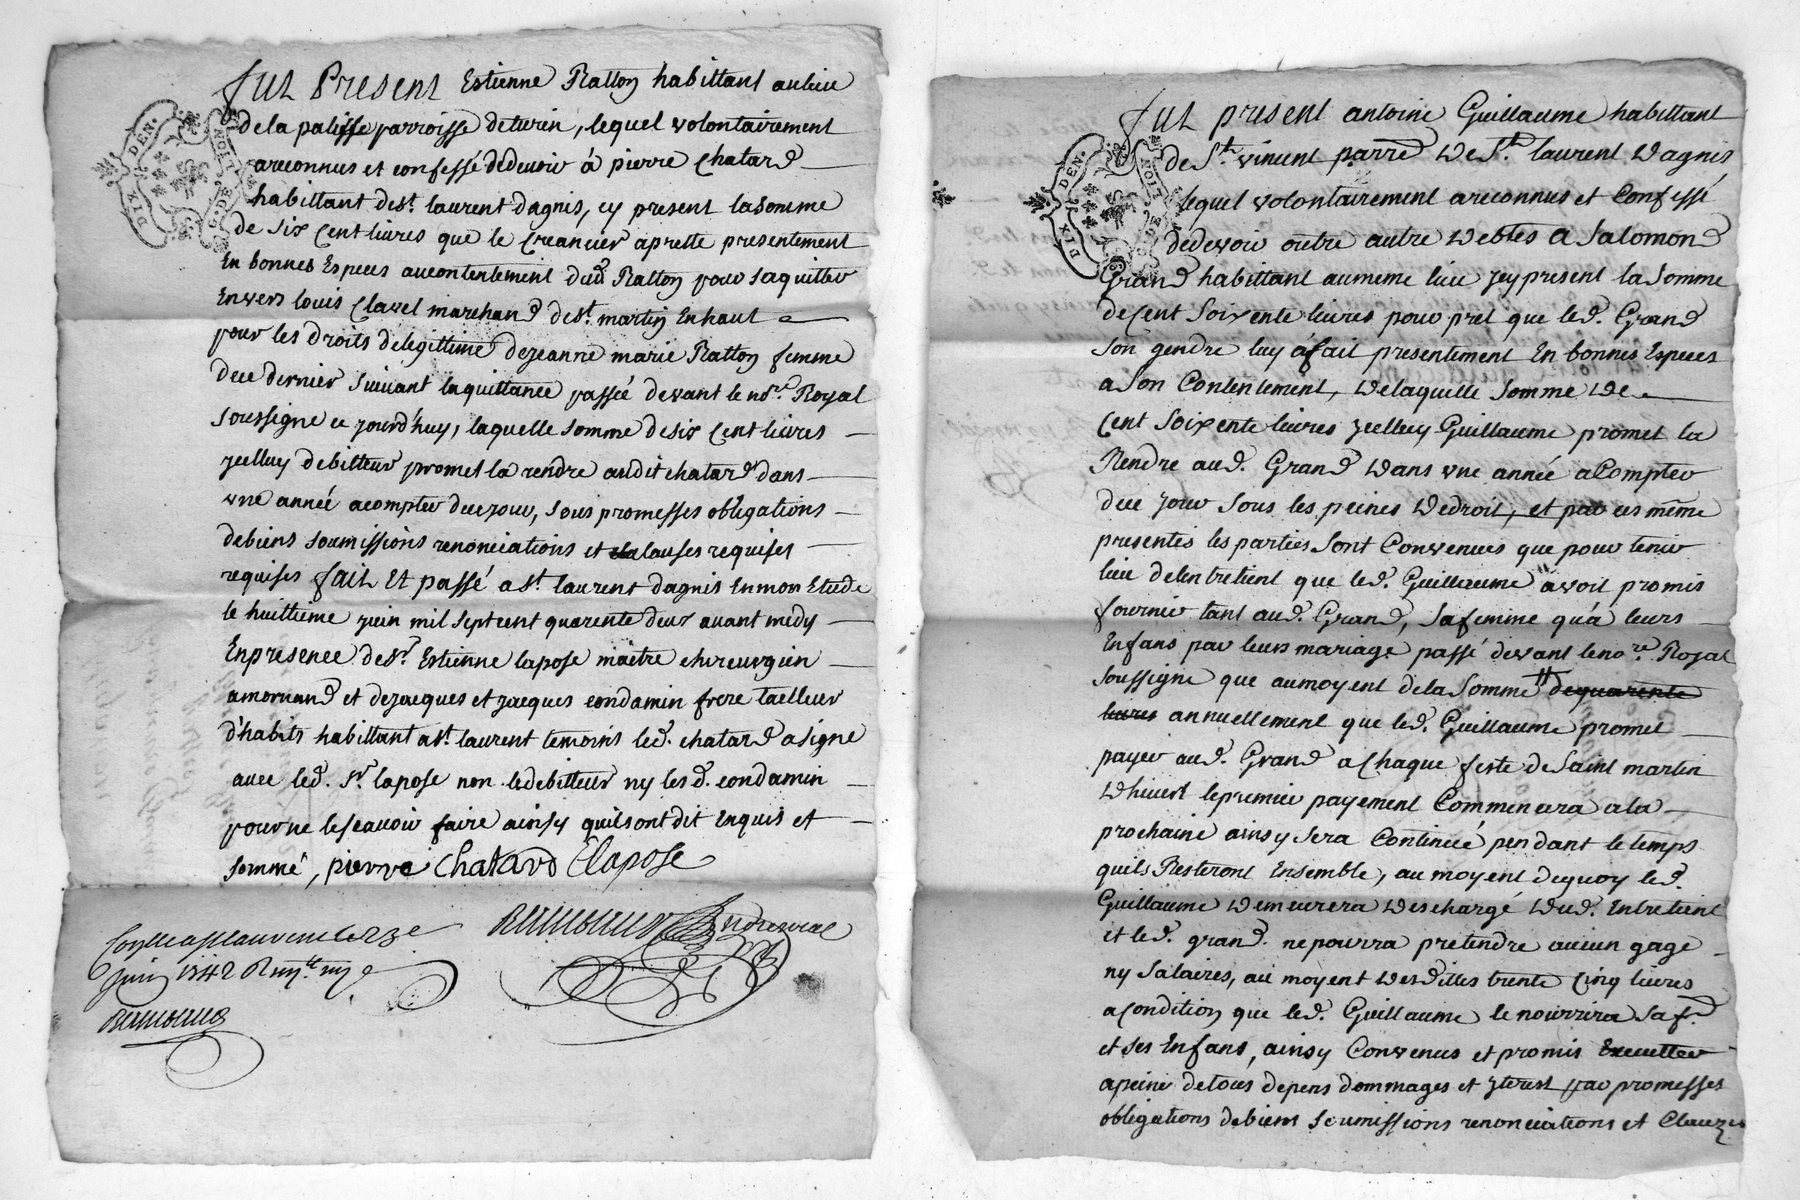 DIX DEN.
G. DE NOIT
fut Present Estienne Ratton habittant aulieu
dela palisse parroisse deturin, lequel volontairement
areconnus et confessé dedevoir à pierre chatard
habittant de st. laurent dagnis, cy present lasomme
de six Cent livres que le Creancier a prette presentement
En bonnes Especes aucontentement dud. Ratton pour saquitter
Envers louis Clavel marchand de st. martin Enhaut
pour les droits delegittime dejeanne marie Ratton femme
dece dernier suivant laquittance passée devant le nore. Royal
soussigne ce jourd'huy, laquelle somme desix Cent livres
jcelluy debitteur promet la rendre audit chatard dans
vne année acompter decejour, sous promesses obligations
debiens soumissions renonciations et clauses requises
requises fait Et passé a st. laurent dagnis Enmon Etude
le huittieme juin mil sept cent quarente deux avant midy
Enpresence de sr. Estienne lapose maitre chireurgien
amornand et dejacques et jacques condamin frere tailleur
d'habits habittant a st. laurent temoins led. chatard asigne
avec led. sr. lapose non ledebitteur ny les d. condamin
pour ne lescavoir faire ainsy quilsont dit Enquis et
sommé, pierre Chatard Elapose
juin 1742
DIX DEN.
G. DE NOIT
fut present antoine Guillaume habittant
de st. vincent parre de st. laurent dagnis
lequel volontairement areconnus et Confessé
dedevoir outre autre debtes a Salomond
Grand habittant aumeme lieu jcy present la somme
decent soixente livres pour pret que led. Grand
son gendre luy a fait presentement En bonnes Especes
a son Contentement, delaquelle somme de
Cent soixente livres jcelluy Guillaume promet la
Rendre aud. Grand dans vne année aCompter
dece jour sous les peines dedroit, et par ces même
presentes les parties sont Convenues que pour tenir
lieu delentretient que led. Guillaume avoit promis
fournir tant aud. Grand, safemme qu'a leurs
Enfans par leurs mariage passé devant lenore. Royal
soussigne que aumoyent dela somme dequarente
livres annuellement que led. Guillaume promet
payer aud. Grand a chaque feste de saint martin
dhivert lepremier payement Commencera ala
prochaine ainsy sera Continué pendant le temps
quils Resteront Ensemble, au moyent dequoy led.
Guillaume demeurera deschargé dud. Entretient
et led. grand. nepourra pretendre aucun gage
ny salaires, au moyent desdittes trente Cinq livres
acondition que led. Guillaume lenourrira saf.
et ses Enfans, ainsy Convenus et promis Executter
apeine detous depens dommages et jterest par promesses
obligations debiens soumissions renonciations et Clauzes